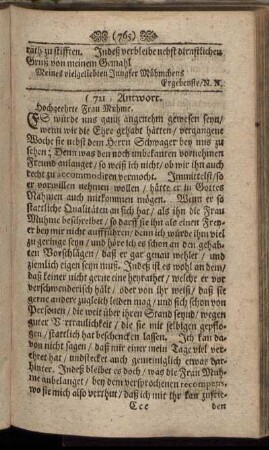 (765)
rath zu stifften. Indeß verbleibe nebst dienstlichen
Gruß von meinem Gemahl
Meines vielgeliebten Jungfer Mühmchens
Ergebenste/N. N.
(721 Antwort.
Hochgeehrte Frau Muhme.
ES würde uns gantz angenehm gewesen seyn/
wenn wir die Ehre gehabt hätten/ vergangene
Woche sie nebst dem Herrn Schwager bey uns zu
sehen; Denn was den noch unbekanten vornehmen
Freund anlanget/ so weiß ich nicht/ ob wir ihn auch
recht zu accommodiren vermocht. Immittelst/so
er vorwillen nehmen wollen/ hätte er in Gottes
Nahmen auch mitkommen mögen. Wenn er so
stattliche Qualitäten an sich hat/ als ihn die Frau
Muhme beschreibet/ so darff sie ihn als einen Frey-
er bey mir nicht auffführen/ denn ich würde ihn viel
zu geringe seyn/ und höre ich es schon an den gehab-
ten Vorschlägen/ daß er gar genau wehler/ und
ziemlich eigen seyn muß. Indeß ist es wohl an dem/
daß keiner nicht gerne eine heyrathet/ welche er vor
verschwenderisch hält/ oder von ihr weiß/ daß sie
gerne andere zugleich leiden mag/ und sich schon von
Personen/ die weit über ihren Stand seynd/ wegen
guter Vertraulichkeit/ die sie mit selbigen gepflo-
gen/ stattlich hat beschencken lassen. Ich kan da-
von nicht sagen/ daß mir einer mein Tage viel ver-
ehret hat/ und stecket auch gemeiniglich etwas dar-
hinter. Indeß bleibet es doch/ was die Frau Muh-
me anbelanget/ bey dem versprochenen recompens,
wo sie mich also versthut/ daß ich mit ihr kan zufrie-
Ccc
den